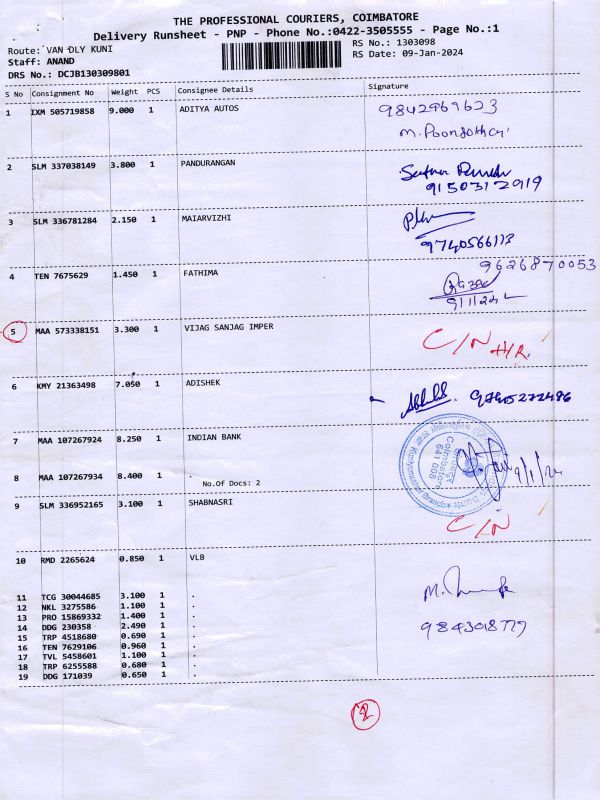 THE PROFESSIONAL COURIERS, COIMBATORE
Delivery Runsheet - PNP - Phone No.:0422-3505555 - Page No.:1
Route: VAN DLY KUNI
RS No.: 1303098
Staff: ANAND
RS Date: 09-Jan-2024
DRS No.: DCJB130309801
S No Consignment No Weight PCS Consignee Details Signature
1 IXM 505719858 9.000 1 ADITYA AUTOS
9842969623
2 SLM 337038149 3.800 1 PANDURANGAN
9150312919
3 SLM 336781284 2.150 1 MAIARVIZHI
9740566113
9626870053
4 TEN 7675629 1.450 1 FATHIMA
5 MAA 573338151 3.300 1 VIJAG SANJAG IMPER C/N H/R.
6 KMY 21363498 7.050 1 ADISHEK
7 MAA 107267924 8.250 1 INDIAN BANK
8 MAA 107267934 8.400 1 .
No.Of Docs: 2
Coimbatore
641 008
9/1/24
9 SLM 336952165 3.100 1 SHABNASRI C/N
10 RMD 2265624 0.850 1 VLB
11 TCG 30044685 3.100 1 .
12 NKL 3275586 1.100 1 .
13 PRO 15869332 1.400 1 .
14 DDG 230358 2.490 1 .
15 TRP 4518680 0.690 1 .
16 TEN 7629106 0.960 1 .
17 TVL 5458601 1.100 1 .
18 TRP 6255588 0.680 1 .
19 DDG 171039 0.650 1 .
2